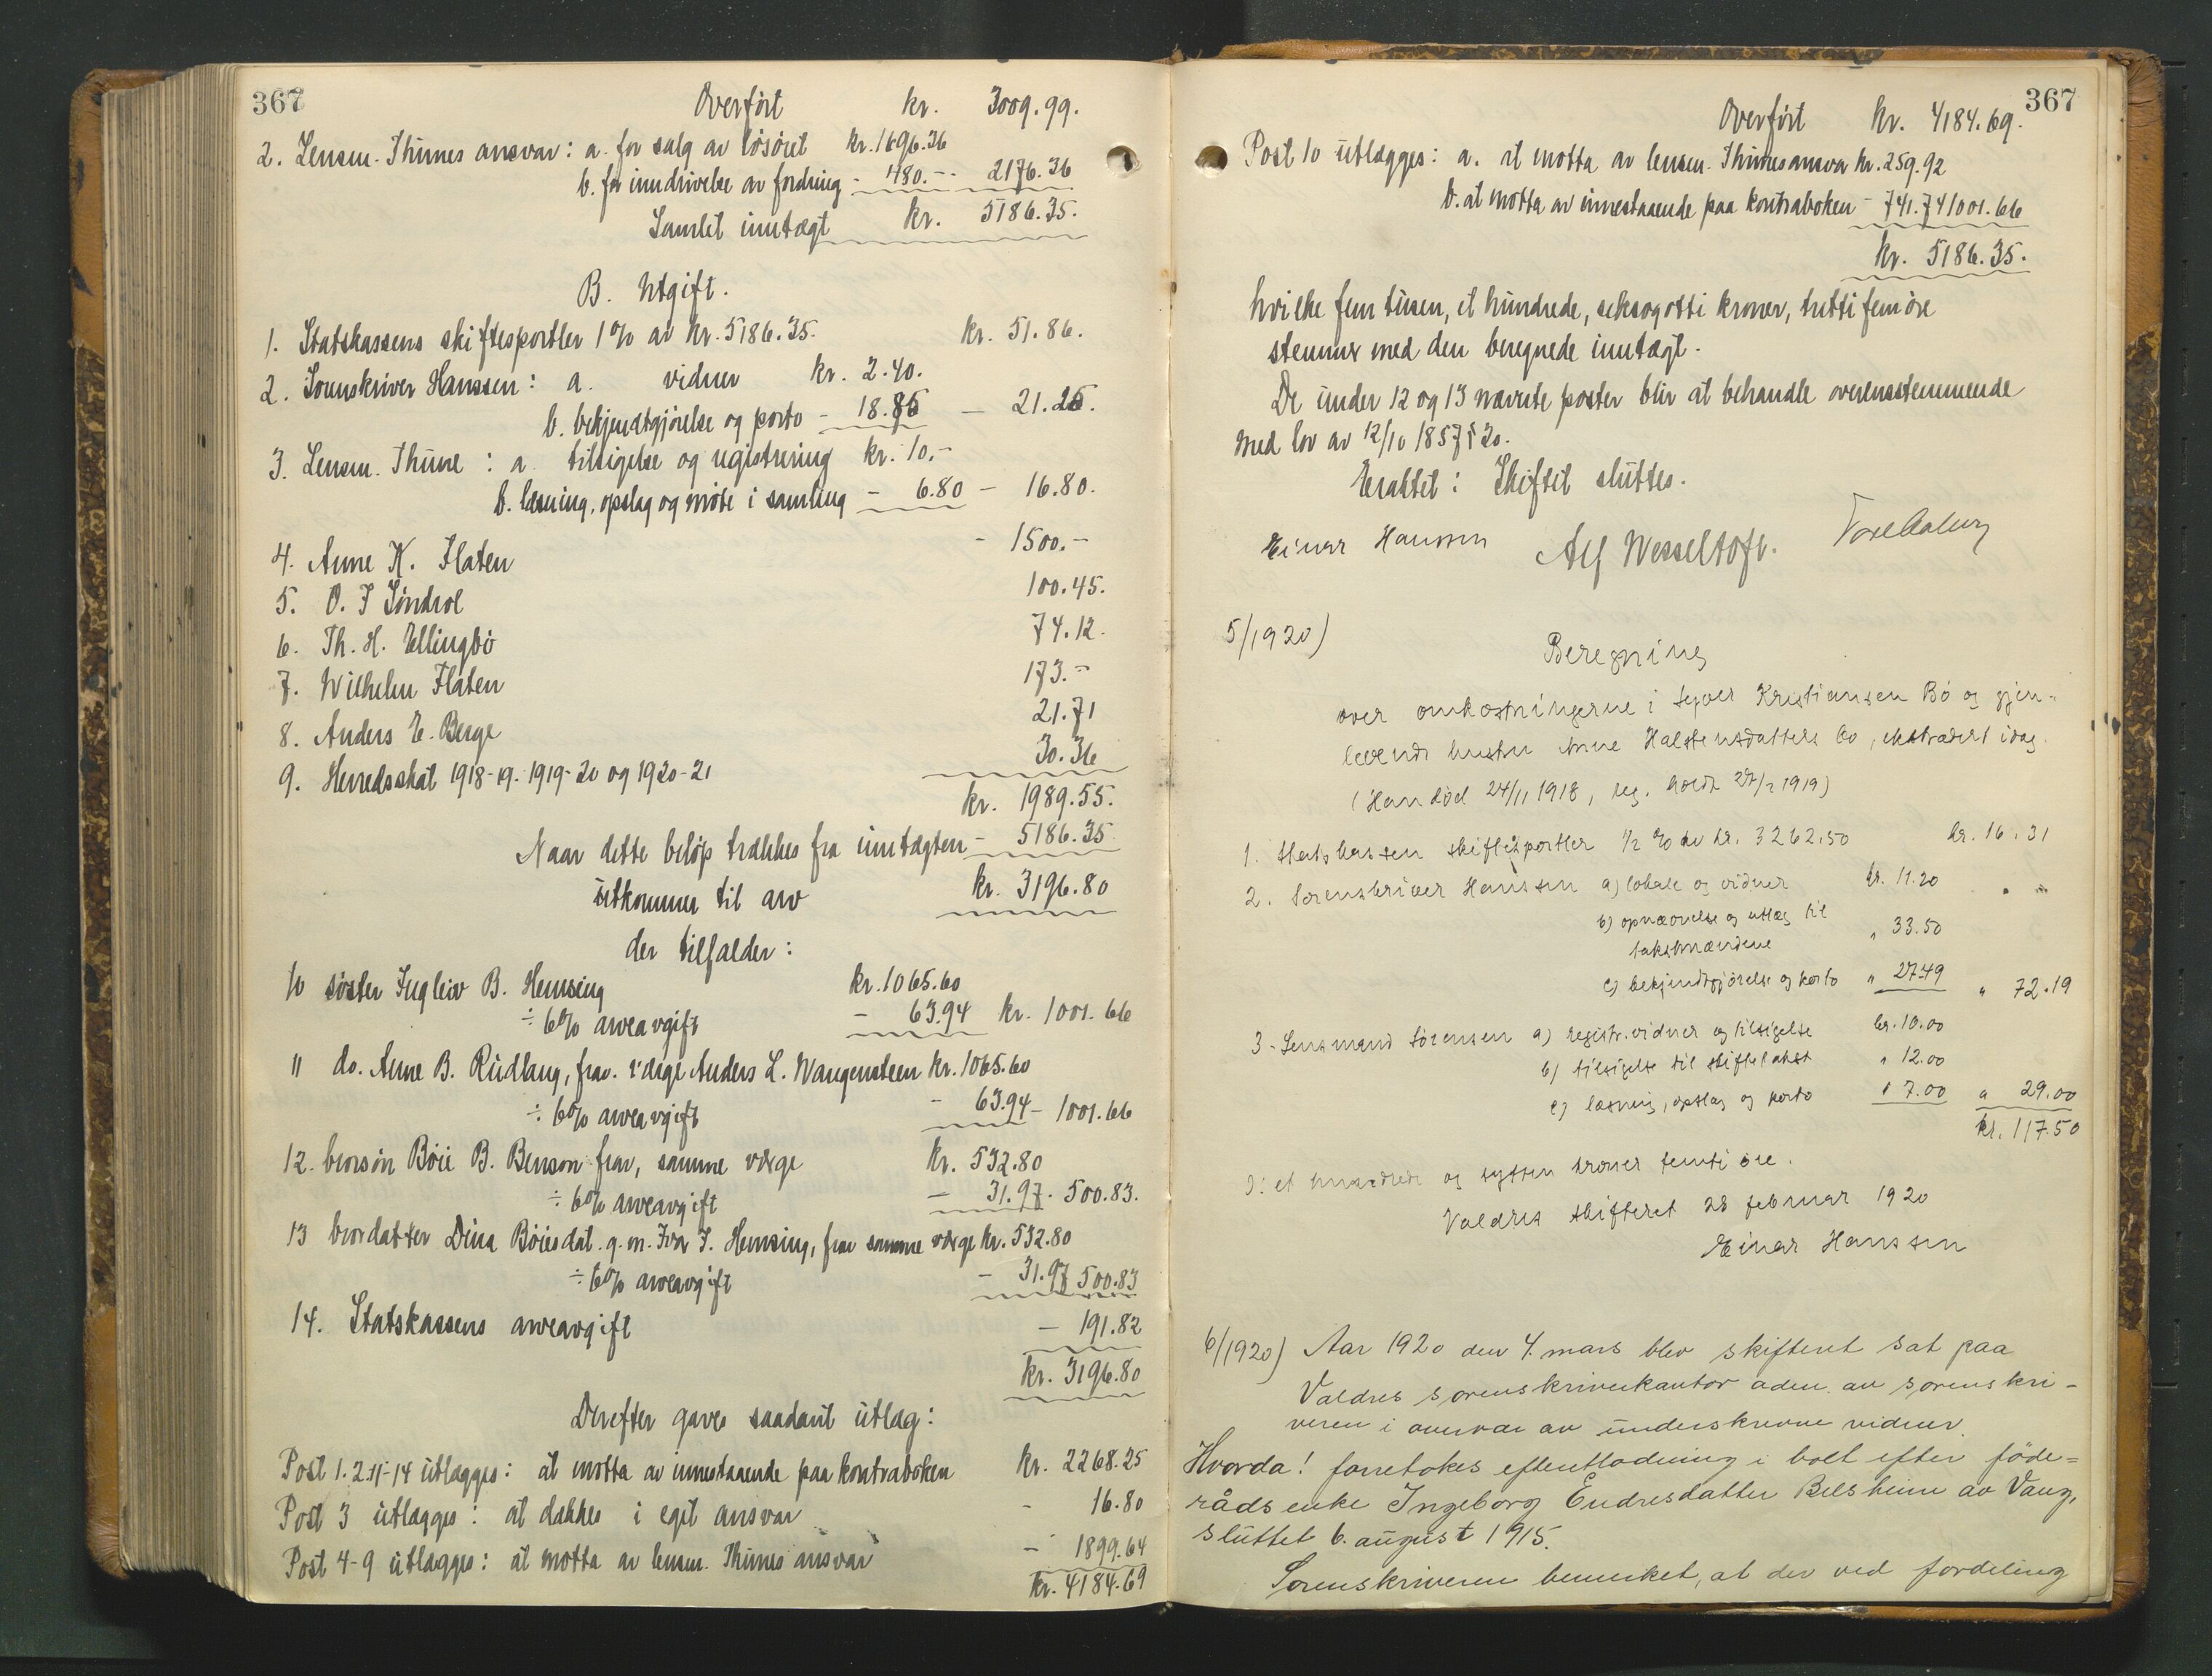 367
Overført kr. 3009.99.
2. Lensm. Thunes ansvar: a. for salg av løsøret kr. 1696.36
b. for inndrivelse av fordring - 480.-- 2176.36
Samlet inntægt kr. 5186.35.
B. Utgift.
1. Statskassens skiftesportler 1% av kr. 5186.35. kr. 51.86.
2. Sorenskriver Hanssen: a. vidner kr. 2.40.
b. bekjendtgjørelse og porto - 18.85 - 21.25.
3. Lensm. Thune: a. tilsigelse og registrering kr. 10.-
b. læsning, opslag og møte i samling - 6.80 - 16.80.
4. Anne K. Flaten - 1500.-
5. O. J Søndrol 100.45.
6. Th. H. Ellingbø 74.12.
7. Wilhelm Flaten 173.-
8. Anders E. Berge 21.71
9. Herredsskat 1918-19-1919-20 og 1920-21 30.36
kr. 1989.55.
Naar dette beløp trækkes fra inntægten - 5186.35
utkommer til arv kr. 3196.80
der tilfalder:
10 søster Ingleiv B. Hemsing kr. 1065.60
÷ 6% arveavgift - 63.94 kr. 1001.66
11 do. Anne B. Rudlang, frav. værge Anders L. Wangensteen kr. 1065.60
÷ 6% arveavgift - 63.94 - 1001.66
12. brorsøn Böie B. Benson frav, samme værge kr. 532.80
÷ 6% arveavgift - 31.97. 500.83.
13 brordatter Dina Böiesdat. g.m. Ivar J. Hemsing, frav samme værge kr. 532.80
÷ 6% arveavgift - 31.97 500.83
14. Statskassens arveavgift - 191.82
kr. 3196.80
Derefter gaves saadant utlæg:
Post 1.2.11-14 utlægges: at motta av innestaaende paa kontraboken kr. 2268.25
Post 3 utlægges: at dækkes i eget ansvar - 16.80
Post 4-9 utlægges: at motta av lensm. Thunes ansvar - 1899.64
kr. 4184.69
367
Overført kr. 4184.69.
Post 10 utlægges: a. at motta av lensm. Thunes ansva kr. 259.92
b. at motta av innestaaende paa kontraboken - 741.74 1001.66
kr. 5186.35.
hvilke fem tusen, et hundrede, seksogotti kroner, trettifem øre
stemmer med den beregnede inntægt.
De under 12 og 13 nævnte poster blir at behandle overensstemmende
med lov av 12/10 1857 § 20.
Eraktet: Skiftet sluttes.
Einar Hanssen Alf Wesseltoft.
5/1920)
Beregning
over omkostningerne i Kristiansen Bø og gjen-
levende hustru Anne Halstensdatters bo, ekstradert idag.
(Han død 24/11 1918, reg. holdt 27/2 1919)
1. Statskassen skiftesportler 1/2 % av kr. 3262.50 kr. 16.31
2. Sorenskriver Hanssen a) lokale og vidner kr. 11.20
b) opnævnelse og utlæg til
takstmændene " 33.50
c) bekjendtgjørelse og porto " 27.49 " 72.19
3. Lensmand Sørensen a) registr. vidner og tilsigelse kr. 10.00
b) tilsigelse til skiftetakst " 12.00
c) læsning, opslag og porto " 7.00 " 29.00
kr. 117.50
D: et hundrede og sytten kroner femti øre.
Valdres skifteret 28 februar 1920
Einar Hanssen
6/1920) Aar 1920 den 4. mars blev skifteret sat paa
Valdres sorenskriverkontor adm. av sorenskri-
veren i overvær av underskrevne vidner.
Hvorda! foretokes efterutlodning i boet efter føde-
råds enke Ingeborg Endresdatter Belsheim av Vang,
sluttet 6. august 1915.
Sorenskriveren bemerket, at der ved fordeling